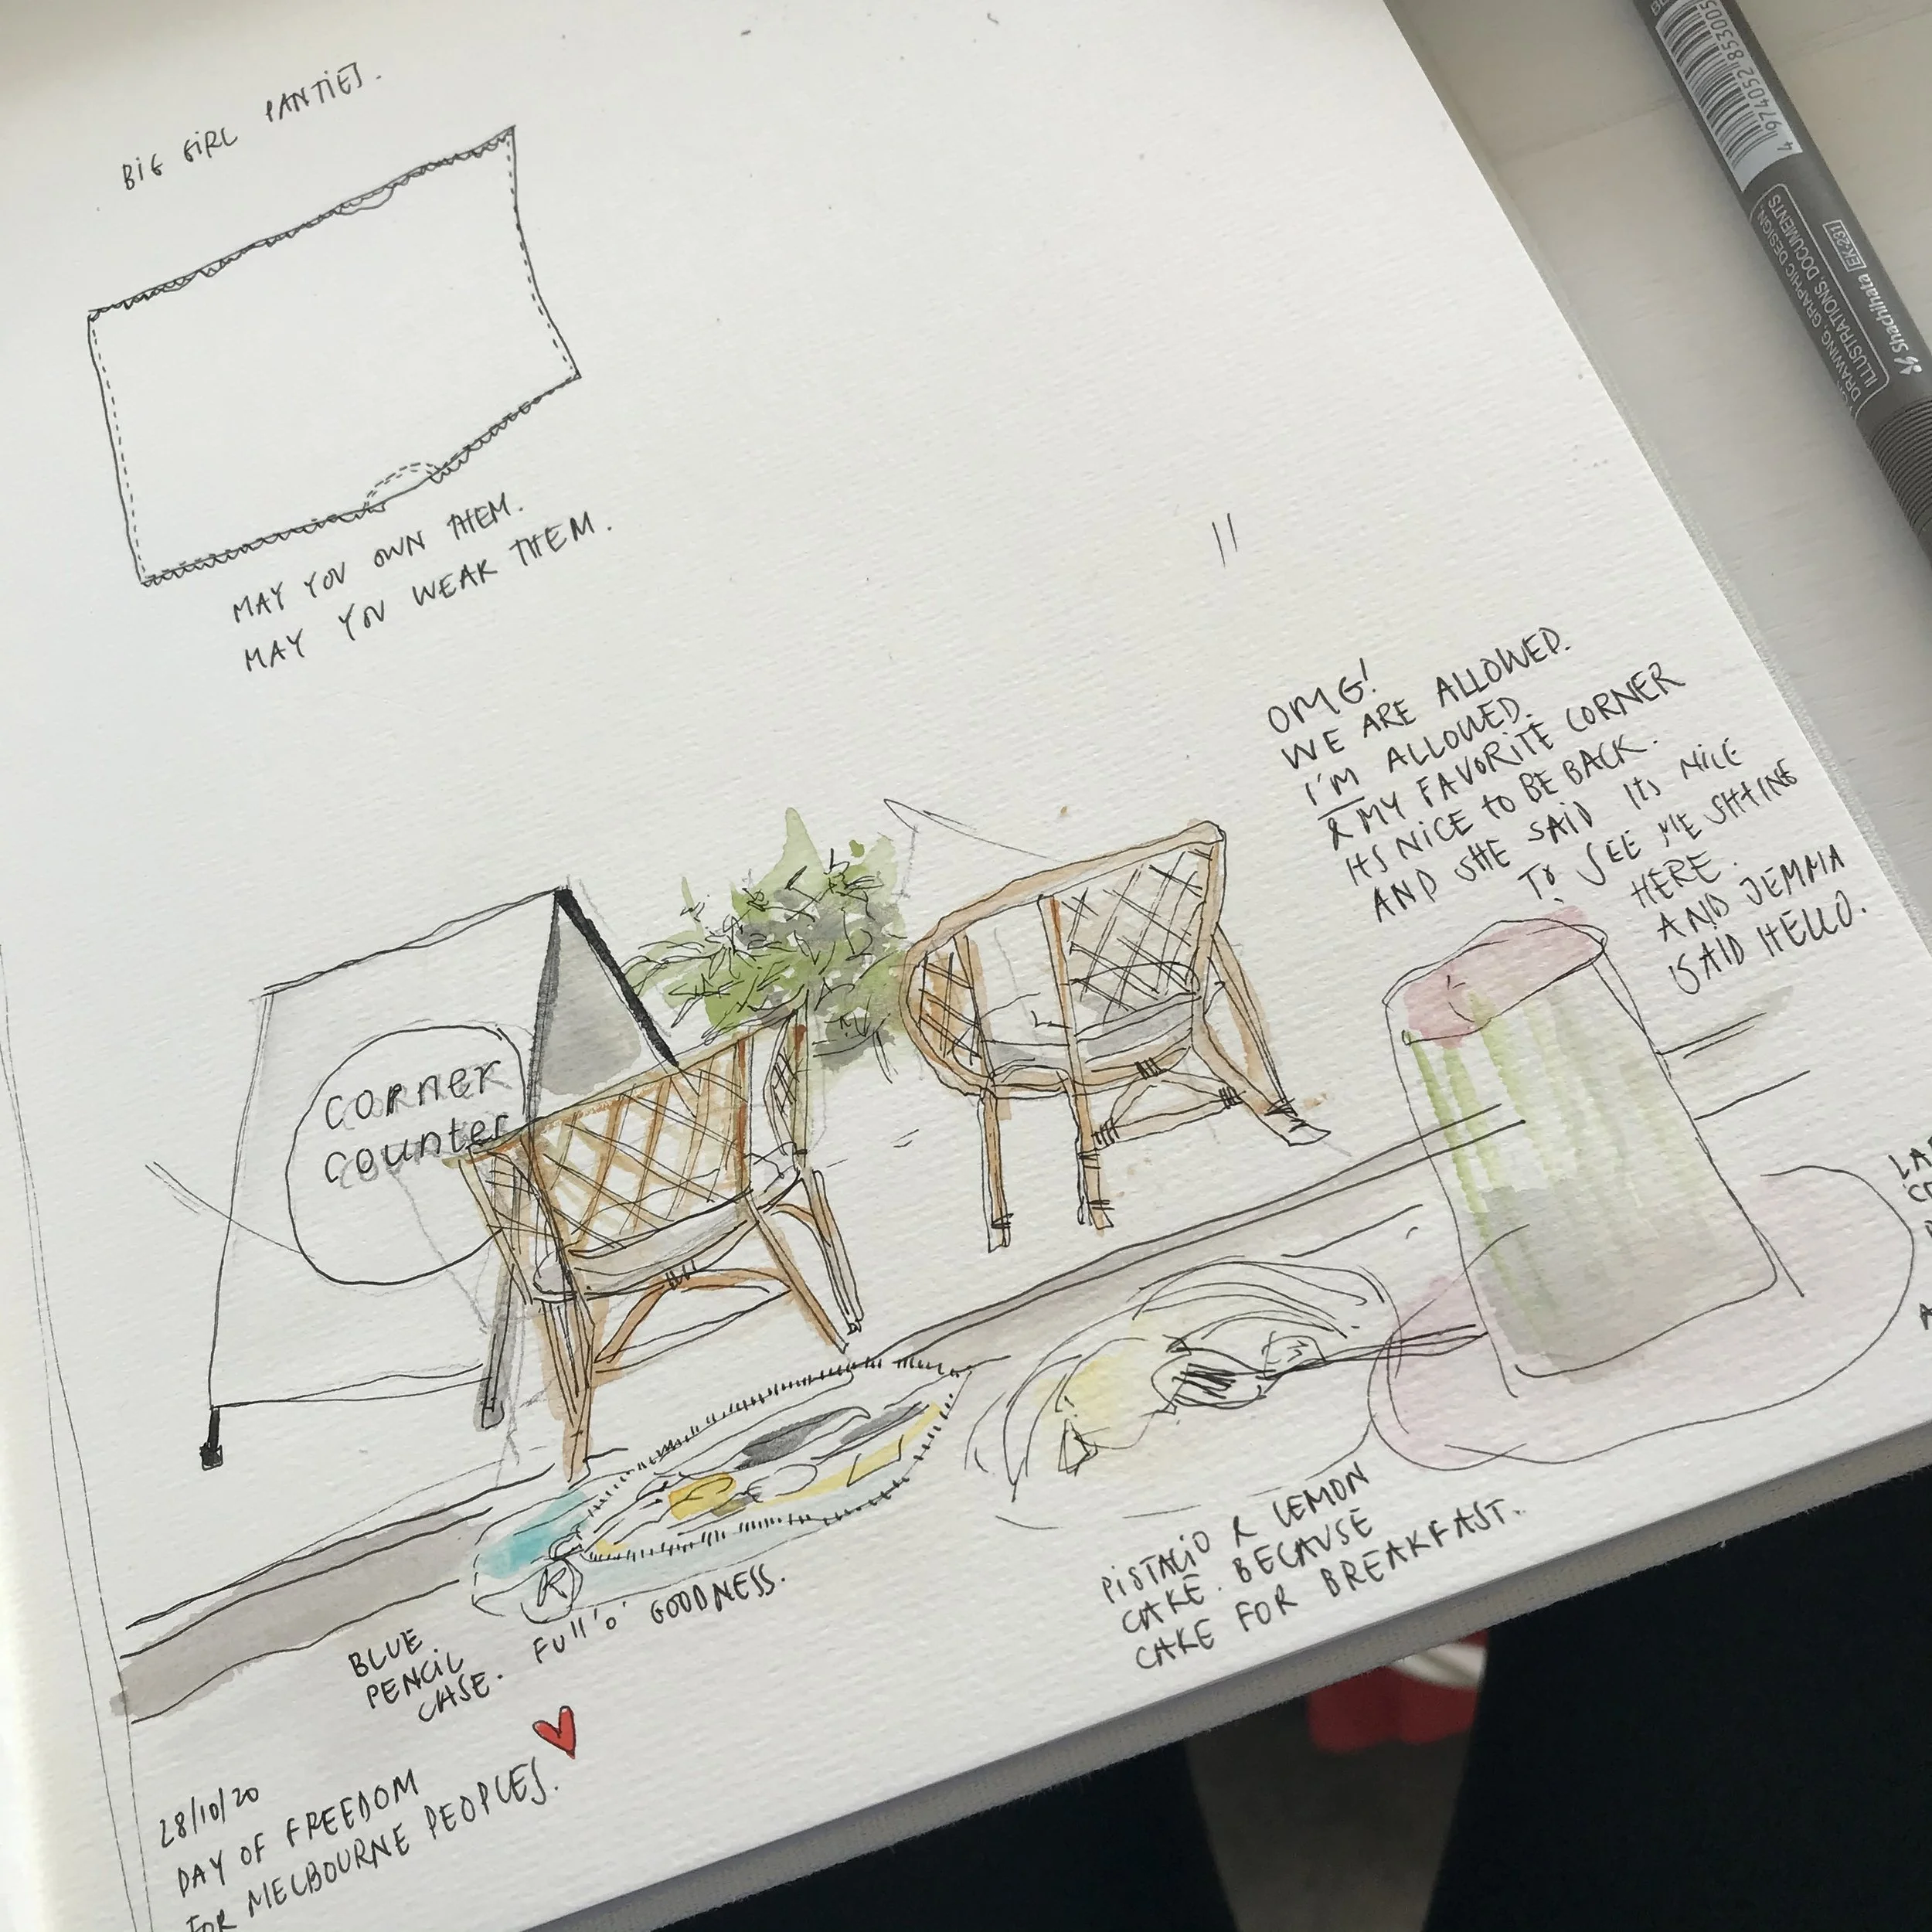 BIG GIRL PANTIES.
MAY YOU OWN THEM.
MAY YOU WEAR THEM.
OMG!
WE ARE ALLOWED.
I'M ALLOWED.
& MY FAVORITE CORNER
ITS NICE TO BE BACK.
AND SHE SAID ITS NICE
TO SEE ME SHINE
HERE.
AND JEMMA
SAID HELLO.
corner
counter
PISTACIO & LEMON
CAKE. BECAUSE
CAKE FOR BREAKFAST.
BLUE
PENCIL
CASE. Full 'o' GOODNESS.
28/10/20
DAY OF FREEDOM
FOR MELBOURNE PEOPLES.
4 974052 853005
DRAWING, GRAPHIC DESIGN,
ILLUSTRATIONS, DOCUMENTS
Shachihata EK-231